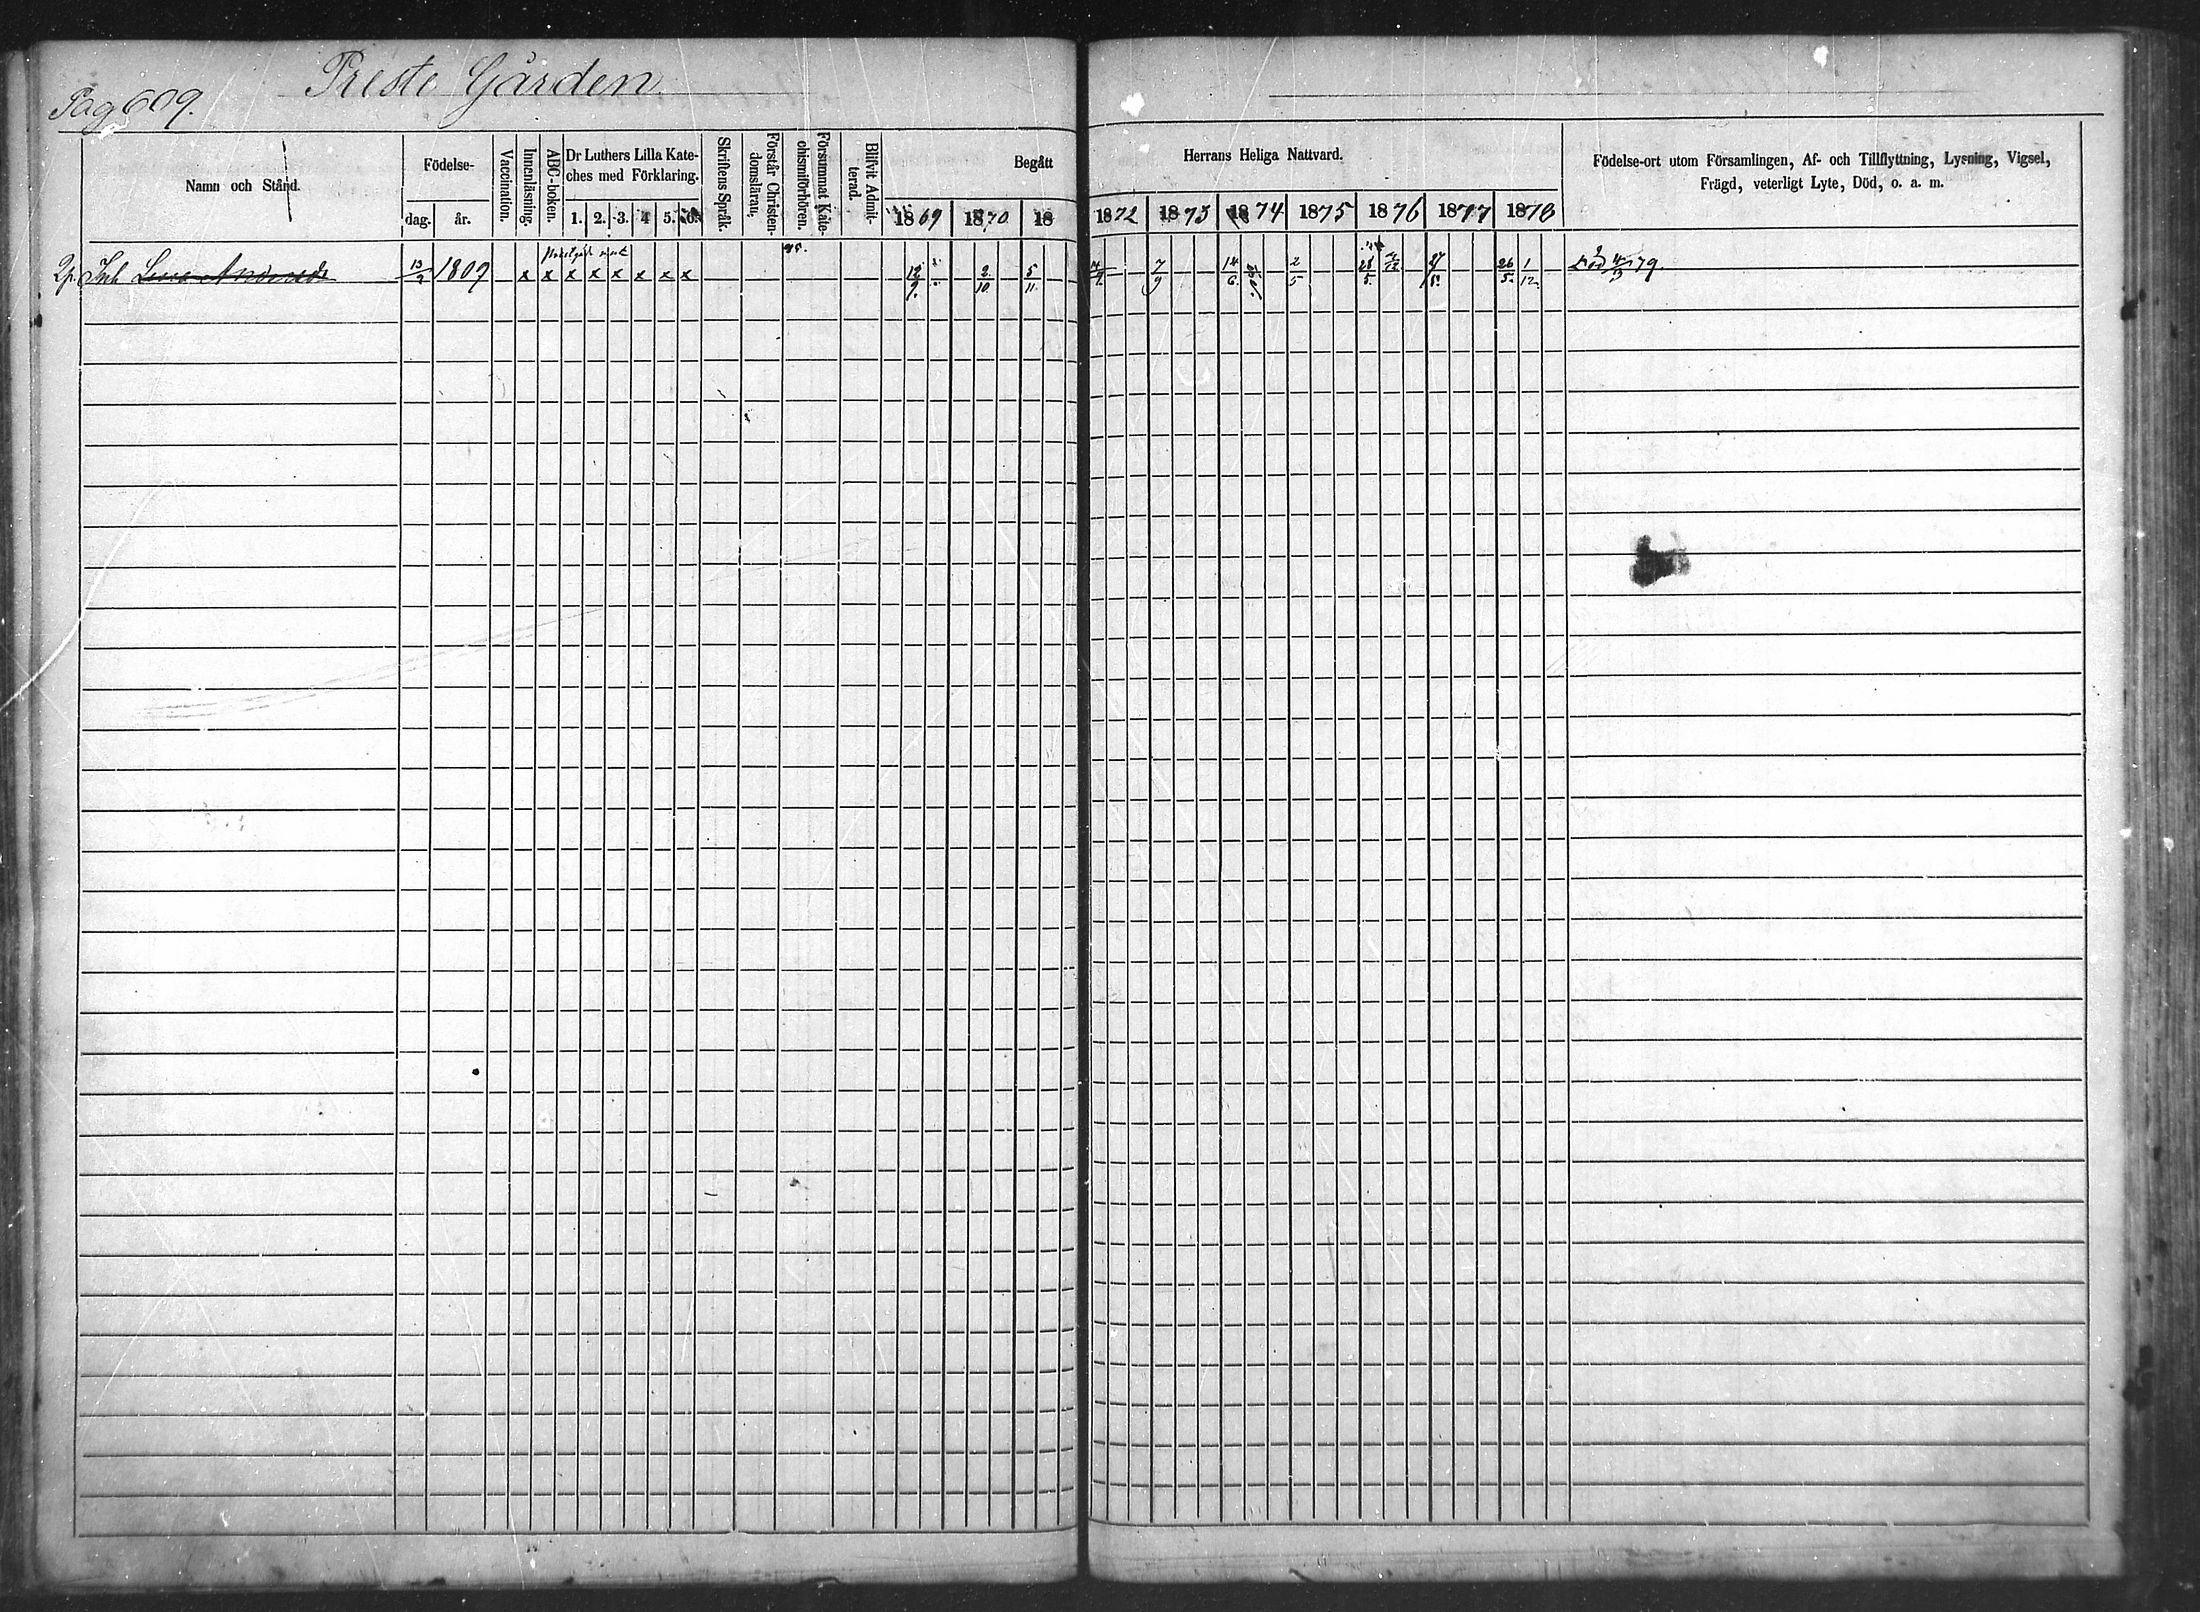 Pag 609.
Preste Gården.
Namn och Stånd.
Födelse-
dag.
år.
Vaccination.
Innenläsning.
ABC-boken.
Dr Luthers Lilla Kate-
ches med Förklaring.
1. 2. 3. 4 5. 6.
Skriftens Språk.
Förstår Christen-
domsläran,
Försummat Kate-
chismiförhören.
Blifvit Admit-
terad.
Begått
1869 1870 18
Herrans Heliga Nattvard.
1872 1873 1874 1875 1876 1877 1878
Födelse-ort utom Församlingen, Af- och Tillflyttning, Lysning, Vigsel,
Frägd, veterligt Lyte, Död, o. a. m.
Inh Lena Andersdr 13/9 1809 x x x x x x x x 12/9. 2/10. 5/11. 7/9 14/6. 2/5 28/5. 26/5. 1/12. Död 79.